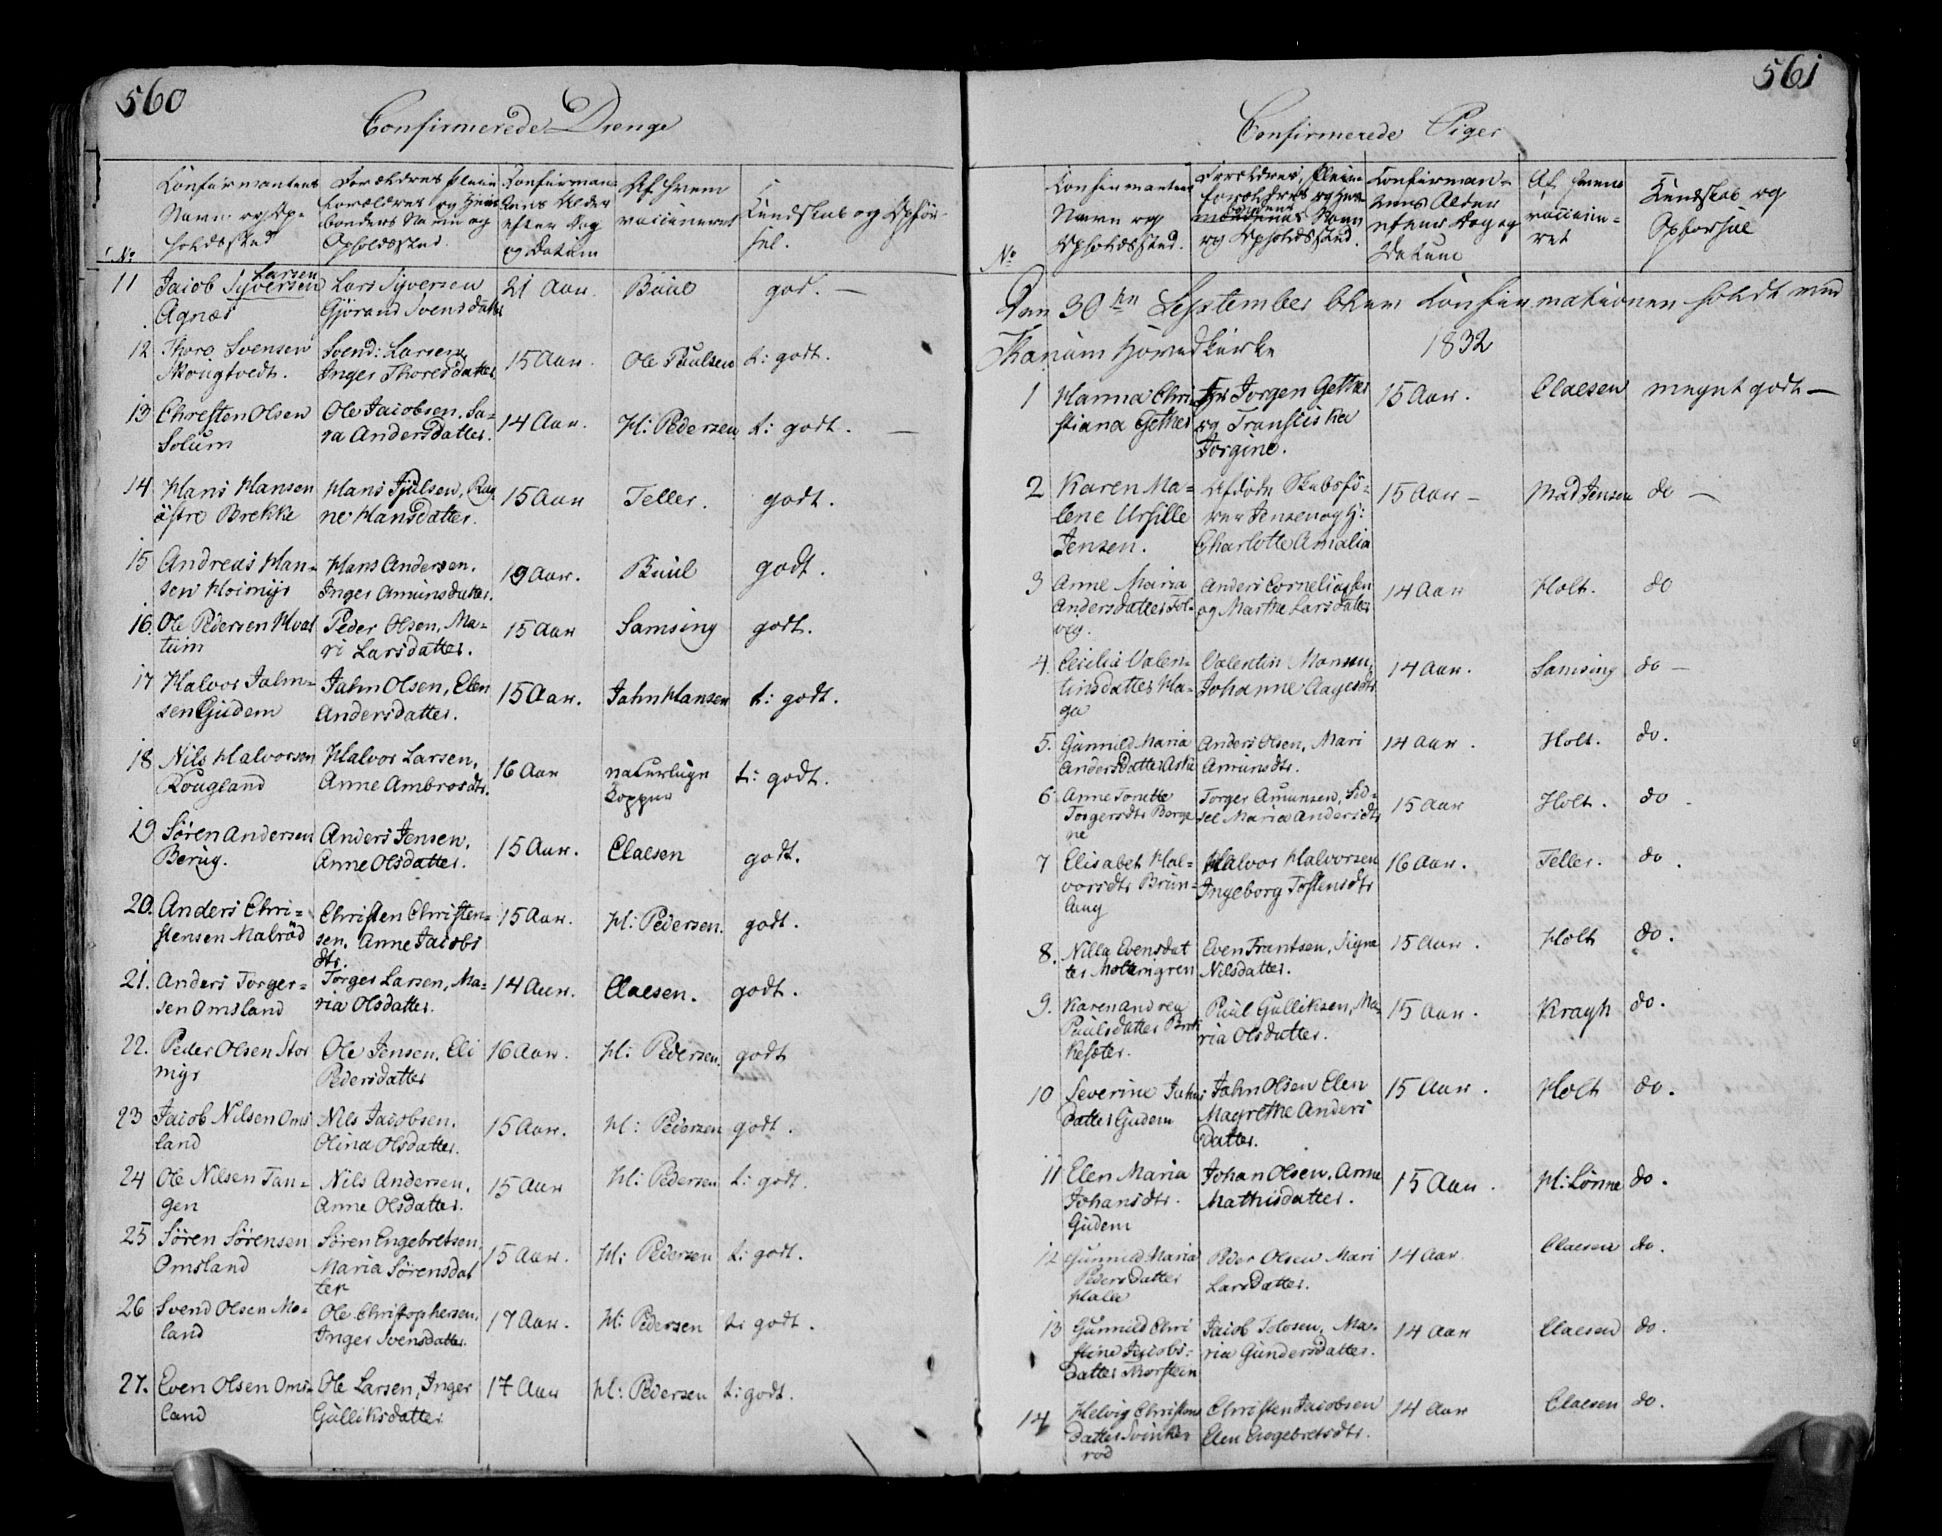 560
Confirmerede Drenge
No
Confirmantens
Navn og Op-
holdssted
Forældres
og
Navn og
Opholdssted.
Confirman-
tens Alder
efter Dag
og Datum
Af hvem
vaccineret
Kundskab og Opfør-
sel.
11 Jacob Syversen Larsen
Agnæs
Lars Syversen
Gjörand Svensdatter
21 Aar. Buul god. —
12 Thore Svensen
Skougtvedt.
Svend: Larsen,
Inger Thoresdatter
15 Aar. Ole Paulsen t: godt.
13 Chresten Olsen
Solum
Ole Jacobsen. Sa-
ra Andersdatter.
14 Aar. H: Pedersen t: godt. —
14 Hans Hansen
östre Brekke
Hans Tjulsen, Rag
ne Hansdatter.
15 Aar Teller. godt.
15 Andreas Han-
sen Hoimyr
Hans Andersen.
Inger Amunsdatter.
19 Aar. Buul godt.
16. Ole Pedersen Hvas
tum
Peder Olsen, Ma-
ri Larsdatter.
15 Aar Samsing godt.
17 Halvor Jahn-
sen Gudem
Jahn Olsen, Elen
Andersdatter.
15 Aar. Jahn Hansen t: godt.
18 Nils Halvorsen
Rougland
Halvor Larsen,
Anne Ambrosdtr.
16 Aar naturlige
Kopper
t: godt.
19 Søren Andersen
Berug.
Anders Jensen.
Anne Olsdatter.
15 Aar. Claesen godt.
20. Anders Chri-
stensen Malröd
Christen Christen-
sen. Anne Jacobs
dtr.
15 Aar. H: Pedersen. godt.
21. Anders Torger-
sen Omsland
Torger Larsen, Ma-
ria Olsdatter.
14 Aar. Claesen. godt.
22. Peder Olsen Stor
myr
Ole Jensen. Eli
Pedersdatter
16 Aar. H: Pedersen. godt
23 Jacob Nilsen Oms
land
Nils Jacobsen.
Olina Olsdatter.
15 Aar. H: Pedersen godt.
24 Ole Nilsen Tan-
gen
Nils Andersen.
Anne Olsdatter.
15 Aar H: Pedersen t: godt.
25 Søren Sörensen
Omsland
Søren Engebretsen
Maria Sörensdat
ter
15 Aar. H: Pedersen t: godt.
26 Svend Olsen Mo-
land
Ole Christophersen.
Inger Svensdatter
17 Aar. H: Pedersen t: godt.
27. Even Olsen Oms-
land
Ole Larsen, Inger
Gulliksdatter
17 Aar H: Pedersen t: godt.
561
Confirmerede Piger
No
Confirmantens
Navn og
Opholdssted.
Forældres,
forældres og
Navn
og Opholdssted.
Confirman-
tens Alder
efter Dag og
Datum
Af hvem
vaccine-
ret
Kundskab og
Opførsel
Den 30te September blev Confirmationen holdt ved
Skanum Hovedkirke 1832
1 Hanna Chri
stiana Gether
Hr Jorgen Gether
og Transliska
Jorgine.
15 Aar. Claesen meget godt —
2 Karen Ma-
lene Ursille
Jensen.
Afdöde Skibsfö-
rer Jensen og H:
Charlotte Amalia
15 Aar – Mad Jensen do —
3 Anne Maria
Andersdatter Sol-
vig.
Anders Corneliussen
og Marthe Larsdatter
14 Aar Holt. do
4. Cicilia Valen-
tinsdatter Ha-
ga
Valentin Monsen,
Johanne Aagesdtr
14 Aar. Samsing do —
5. Gunnild Maria
Andersdatter Aske
Anders Olsen, Mari
Amunsdtr.
14 Aar. Holt. do.
6 Anne Tonette
Torgersdtr Berge
ne
Torger Amunsen, Sid-
sel Maria Andersdtr
15 Aar Holt. do.
7 Elisabet Hal-
vorsdtr Brun-
laug
Halvor Halvorsen
Ingeborg Torstensdtr
16 Aar. Teller. do.
8. Nilla Evensdat
ter Holtmgren
Even Frantsen, Signe
Nilsdatter.
15 Aar. Holt do.
9. Karen Andrea
Paulsdatter Brek
kesæter.
Paul Gulliksen, Ma-
ria Olsdatter.
15 Aar. Kragh do.
10 Severine Jahns
datter Gudem
Jahn Olsen Elen
Magrethe Anders
datter.
15 Aar. Holt do.
11 Elen Maria
Johansdtr.
Gudem
Johan Olsen. Anne
Mathisdatter.
15 Aar. H: Lönne do.
12 Gunnild Maria
Pedersdatter
Hals
Peder Olsen Mari
Larsdatter.
14 Aar. Claesen do.
13 Gunnild Chri
stine Jacobs-
datter Thorstein
Jacob Tolosen, Ma-
ria Gundersdatter.
14 Aar Claesen do.
14 Helvig Christens
datter Svinke
rod
Christen Jacobsen
Elen Engebretsdtr.
14 Aar Claesen do.